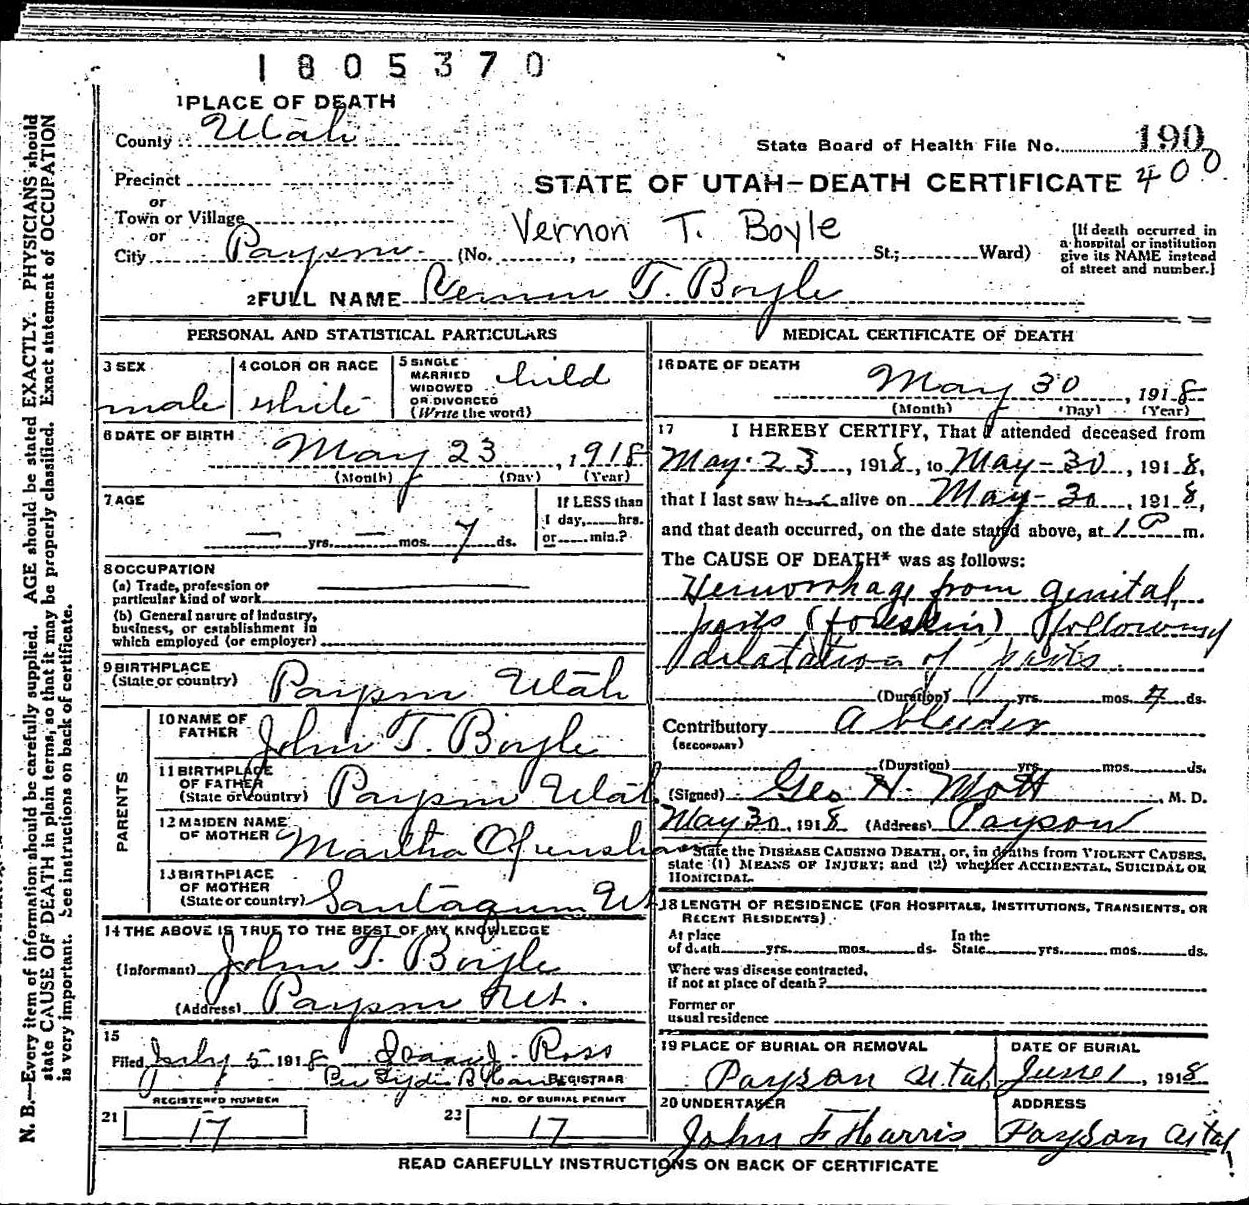 1805370
1 PLACE OF DEATH
County Utah
State Board of Health File No. 190
400
Precinct
or
STATE OF UTAH-DEATH CERTIFICATE
Town or Village
or
Vernon T. Boyle
City Payson (No. , St.; Ward)
[If death occurred in
a hospital or institution
give its NAME instead
of street and number.]
2 FULL NAME Vernon T. Boyle
PERSONAL AND STATISTICAL PARTICULARS
3 SEX
male
4 COLOR OR RACE
white
5 SINGLE
MARRIED
WIDOWED
OR DIVORCED
(Write the word)
child
6 DATE OF BIRTH
May 23, 1918
(Month) (Day) (Year)
7 AGE
— yrs. — mos. 7 ds.
If LESS than
1 day, hrs.
or min.?
8 OCCUPATION
(a) Trade, profession or
particular kind of work
(b) General nature of industry,
business, or establishment in
which employed (or employer)
9 BIRTHPLACE
(State or country) Payson Utah
PARENTS
10 NAME OF
FATHER John T. Boyle
11 BIRTHPLACE
OF FATHER
(State or country) Payson Utah
12 MAIDEN NAME
OF MOTHER Martha Openshaw
13 BIRTHPLACE
OF MOTHER
(State or country) Santaquin Ut
14 THE ABOVE IS TRUE TO THE BEST OF MY KNOWLEDGE
(Informant) John T. Boyle
(Address) Payson Ut.
15
Filed July 5 1918 Ross
Per Lydia B
REGISTRAR
REGISTERED NUMBER
21 17
NO. OF BURIAL PERMIT
22 17
MEDICAL CERTIFICATE OF DEATH
16 DATE OF DEATH
May 30, 1918
(Month) (Day) (Year)
17 I HEREBY CERTIFY, That I attended deceased from
May-23, 1918, to May-30, 1918,
that I last saw him alive on May-30, 1918,
and that death occurred, on the date stated above, at 1 P m.
The CAUSE OF DEATH* was as follows:
Hemorrhage from genital
parts (foreskin) following
dilatation of parts.
(Duration) yrs. mos. 7 ds.
Contributory A bleeder
(SECONDARY)
(Duration) yrs. mos. ds.
(Signed) Geo H. Mott, M. D.
May 30, 1918 (Address) Payson
*State the DISEASE CAUSING DEATH, or, in deaths from VIOLENT CAUSES,
state (1) MEANS OF INJURY; and (2) whether ACCIDENTAL, SUICIDAL OR
HOMICIDAL.
18 LENGTH OF RESIDENCE (FOR HOSPITALS, INSTITUTIONS, TRANSIENTS, OR
RECENT RESIDENTS).
At place
of death yrs. mos. ds.
In the
State yrs. mos. ds.
Where was disease contracted,
if not at place of death?
Former or
usual residence
19 PLACE OF BURIAL OR REMOVAL
Payson Utah
DATE OF BURIAL
June 1, 1918
20 UNDERTAKER
John F Harris
ADDRESS
Payson Utah
READ CAREFULLY INSTRUCTIONS ON BACK OF CERTIFICATE
N. B.—Every item of information should be carefully supplied. AGE should be stated EXACTLY. PHYSICIANS should
state CAUSE OF DEATH in plain terms, so that it may be properly classified. Exact statement of OCCUPATION
is very important. See instructions on back of certificate.